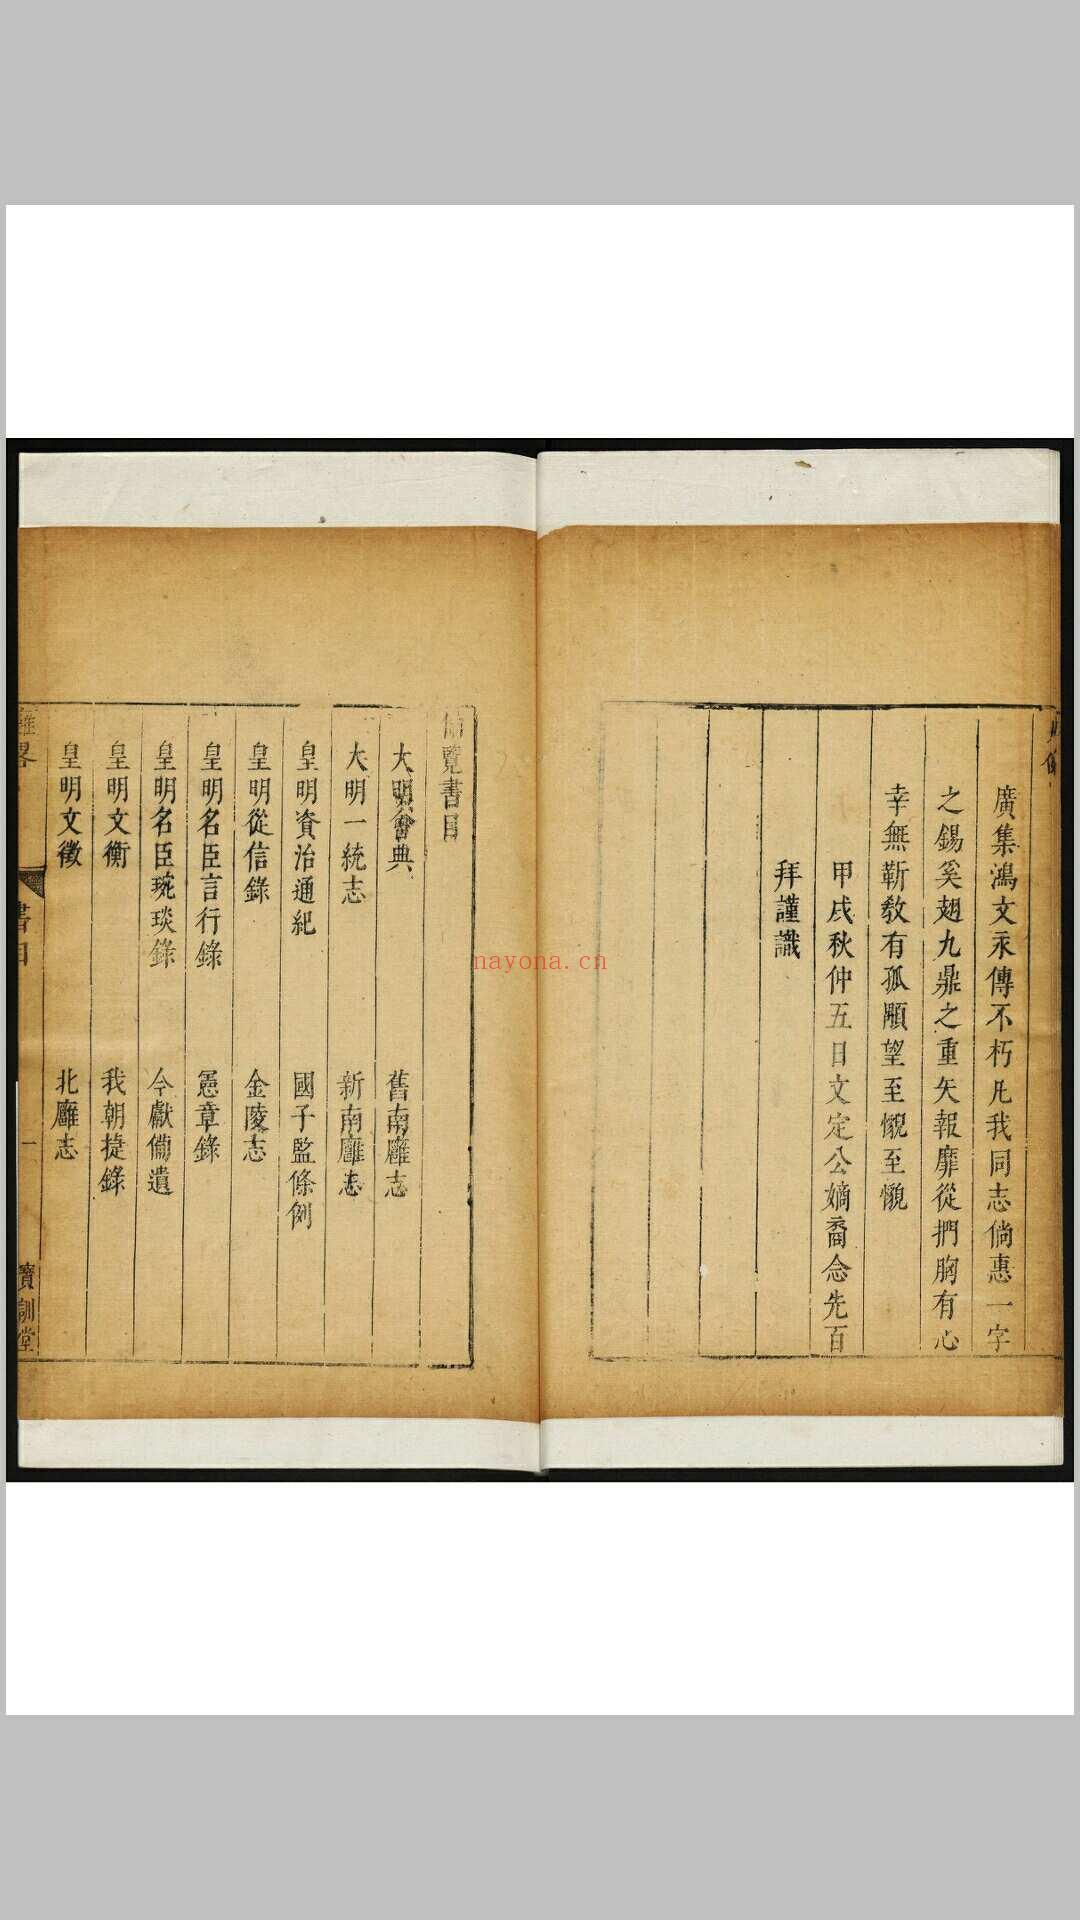 廣集鴻文永傳不朽凡我同志倘惠一字
之錫奚翅九鼎之重矢報靡從捫胸有心
幸無靳敎有孤顒望至懇至懇
甲戌秋仲五日文定公嫡裔念先百
拜謹識
備覽書目
大明會典 舊南廱志
大明一統志 新南廱志
皇明資治通紀 國子監條例
皇明從信錄 金陵志
皇明名臣言行錄 憲章錄
皇明名臣琬琰錄 今獻備遺
皇明文衡 我朝捷錄
皇明文徵 北廱志
雒畧 書目 一 寶訓堂
nayona.cn